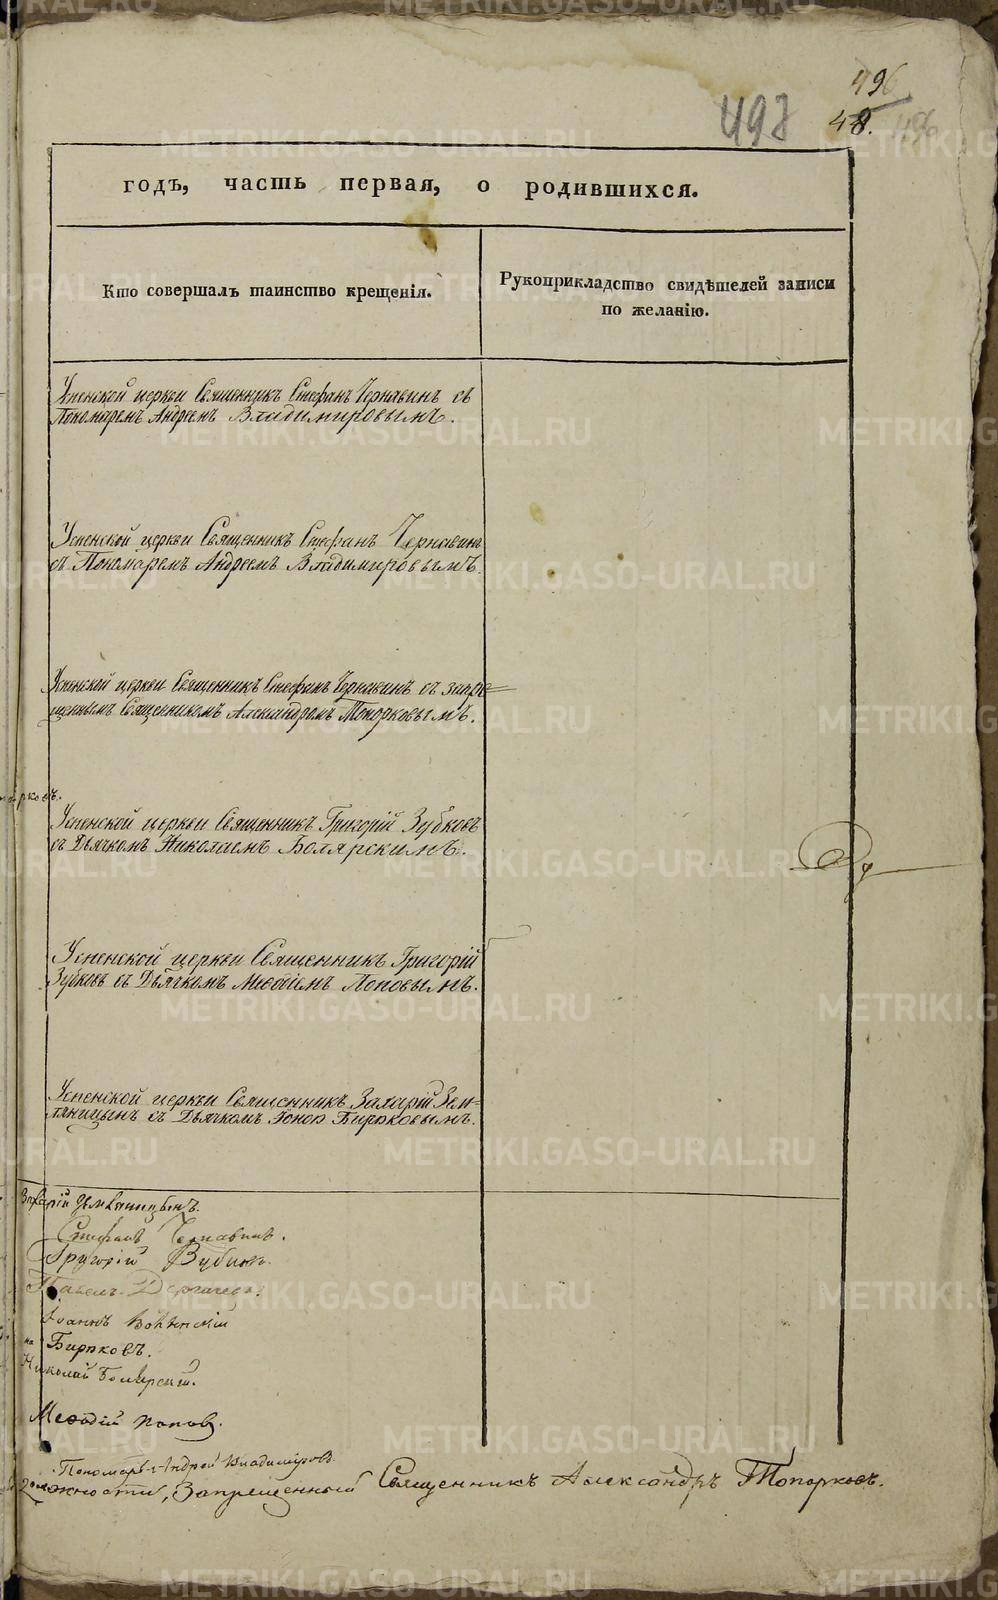 496
498
48.
496
годъ, часть первая, о родившихся.
Кто совершалъ таинство крещенія.
Рукоприкладство свидѣтелей записи
по желанію.
Успенской церкви Священникъ Стефанъ Чернавинъ съ
Пономаремъ Андреемъ Владимировымъ.
Успенской церкви Священникъ Стефанъ Чернавинъ
съ Пономаремъ Андреемъ Владимировымъ.
Успенской церкви Священникъ Стефанъ Чернавинъ съ запре=
щеннымъ Священникомъ Александромъ Топорковымъ.
Успенской церкви Священникъ Григорій Зубковъ
съ Дьячкомъ Николаемъ Болярскимъ.
Успенской церкви Священникъ Григорій
Зубковъ съ Дьячкомъ Меѳодіемъ Поповымъ.
Успенской церкви Священникъ Захарій Зем=
ляницынъ съ Дьячкомъ Іоною Бирюковымъ.
Захарій Земляницынъ.
Стефанъ Чернавинъ.
Григорій Зубковъ.
Павелъ
Іоаннъ
Бирюковъ.
Николай Болярскій.
Меѳодій Поповъ.
Пономарь Андрей Владимировъ
должности, Запрещенный Священникъ Александръ Топорковъ.
METRIKI.GASO-URAL.RU